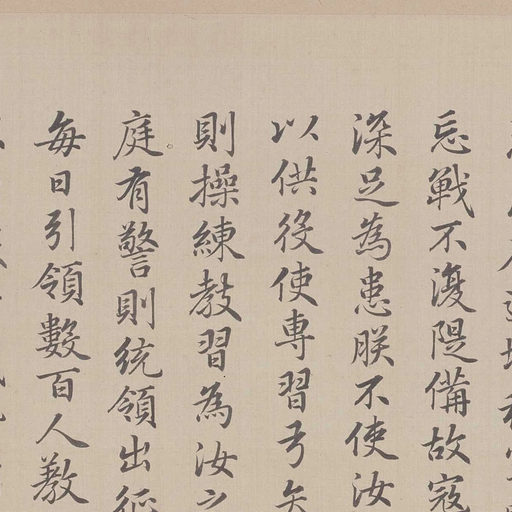 忘戰不復隄備故寇
深足為患朕不使汝
以供役使專習弓矢
則操練教習為汝之
庭有警則統領出征
每日引領數百人教